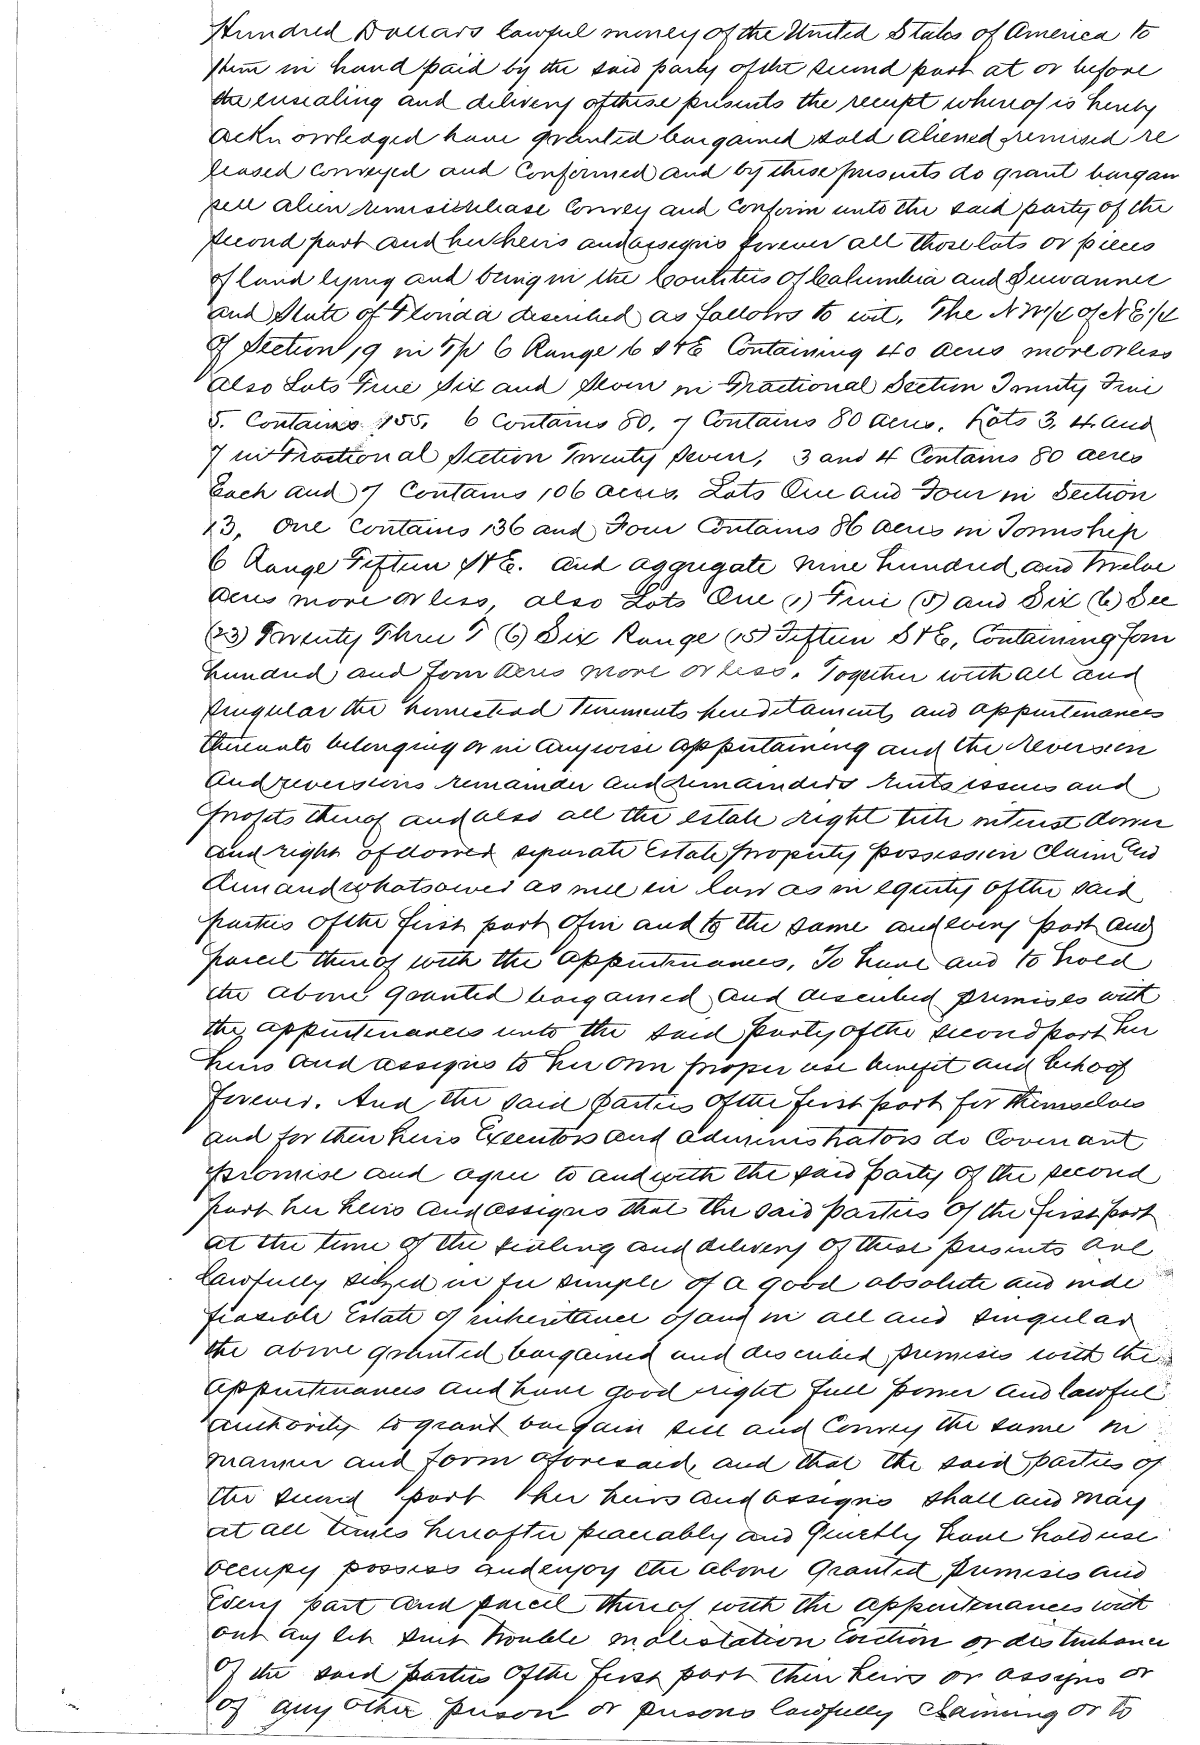 Hundred Dollars lawful money of the United States of America to
them in hand paid by the said party of the second part at or before
the ensealing and delivery of these presents the receipt whereof is hereby
acknowledged have granted bargained sold aliened remised re
leased conveyed and confirmed and by these presents do grant bargain
sell alien remise release convey and confirm unto the said party of the
second part and her heirs and assigns forever all those lots or pieces
of land lying and being in the Counties of Columbia and Suwannee
and State of Florida described as follows to wit. The NW/4 of NE/4
of Section 19 in Tp 6 Range 16 S & E Containing 40 acres more or less
also Lots Five Six and Seven in Fractional Section Twenty Five
5. Contains 155. 6 Contains 80, 7 Contains 80 acres. Lots 3, 4 and
7 in Fractional Section Twenty Seven, 3 and 4 Contains 80 acres
Each and 7 Contains 106 acres. Lots One and Four in Section
13, One Contains 136 and Four Contains 86 acres in Township
6 Range Fifteen S & E. and aggregate nine hundred and twelve
acres more or less, also Lots One (1) Five (5) and Six (6) Sec
(23) Twenty Three T (6) Six Range (15) Fifteen S & E, Containing four
hundred and four acres more or less. Together with all and
singular the homestead tenements hereditaments and appurtenances
thereunto belonging or in anywise appertaining and the reversion
and reversions remainder and remainders rents issues and
profits thereof and also all the estate right title interest dower
and right of dower separate Estate property possession claim and
demand whatsoever as well in law as in equity of the said
parties of the first part of in and to the same and every part and
parcel thereof with the appurtenances. To have and to hold
the above granted bargained and described premises with
the appurtenances unto the said party of the second part her
heirs and assigns to her own proper use benefit and behoof
forever. And the said parties of the first part for themselves
and for their heirs Executors and administrators do Covenant
promise and agree to and with the said party of the second
part her heirs and assigns that the said parties of the first part
at the time of the sealing and delivery of these presents are
lawfully seized in fee simple of a good absolute and inde
feasible Estate of inheritance of and in all and singular
the above granted bargained and described premises with the
appurtenances and have good right full power and lawful
authority to grant bargain sell and Convey the same in
manner and form aforesaid, and that the said parties of
the second part her heirs and assigns shall and may
at all times hereafter peaceably and quietly have hold use
occupy possess and enjoy the above granted premises and
Every part and parcel thereof with the appurtenances with
out any let suit trouble molestation Eviction or disturbance
of the said parties of the first part their heirs or assigns or
of any other person or persons lawfully claiming or to